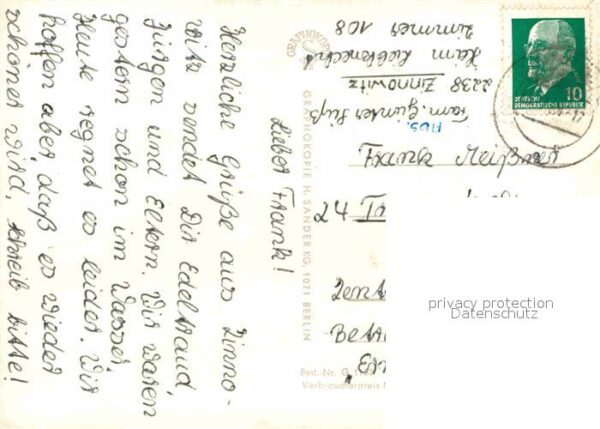 Lieber Frank!
Herzliche Grüße aus Zinno-
witz sendet Dir Edeltraud,
Jürgen und Eltern. Wir waren
gestern schon im Wasser,
Heute regnet es leider. Wir
hoffen aber, daß es wieder
schöner wird, schreib bitte!
GRAPHOKOPIE
GRAPHOKOPIE H. SANDER KG, 1071 BERLIN
Best.-Nr. G
Verbraucherpreis
Abs.
Fam. Günter Süß
2238 Zinnowitz
Zimmer 108
10
DEUTSCHE
DEMOKRATISCHE REPUBLIK
Frank Meißner
24
privacy protection
Datenschutz